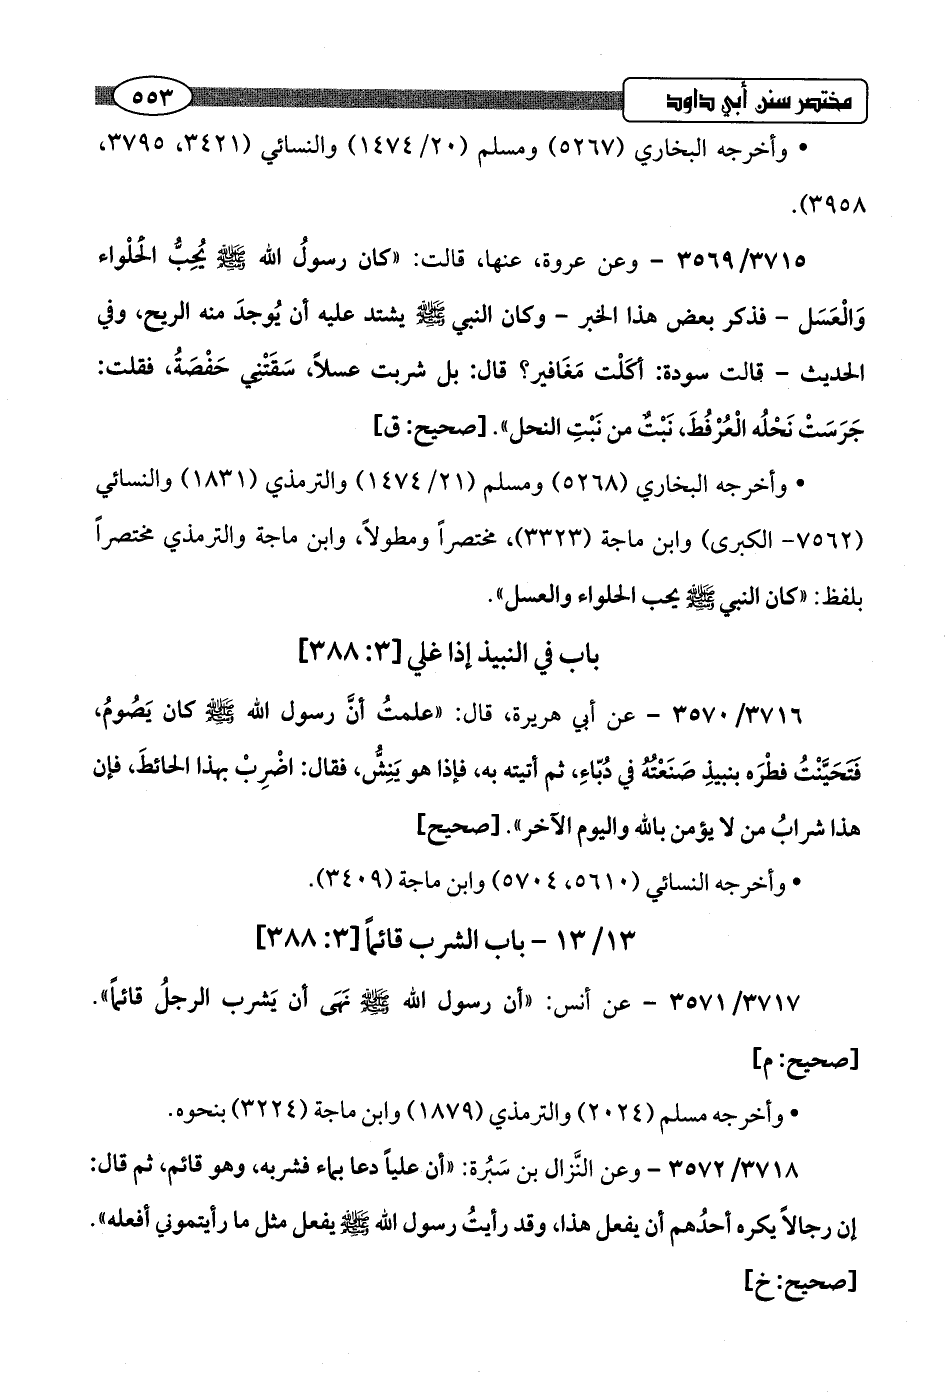 مختصر سنن أبي داود ٥٥٣
• وأخرجه البخاري (٥٢٦٧) ومسلم (٢٠/ ١٤٧٤) والنسائي (٣٤٢١، ٣٧٩٥،
٣٩٥٨).
٣٥٦٩/٣٧١٥ - وعن عروة، عنها، قالت: «كان رسولُ الله ﷺ يُحِبُّ الحُلْواء
وَالْعَسَل - فذكر بعض هذا الخبر - وكان النبي ﷺ يشتد عليه أن يُوجدَ منه الريح، وفي
الحديث - قالت سودة: أكَلْت مَغَافير؟ قال: بل شربت عسلاً، سَقَتْنِي حَفْصَةُ، فقلت:
جَرَسَتْ نَحْلُه الْعُرْفُطَ، نَبْتٌ من نَبْتِ النحل». [صحيح: ق]
• وأخرجه البخاري (٥٢٦٨) ومسلم (٢١/ ١٤٧٤) والترمذي (١٨٣١) والنسائي
(٧٥٦٢- الكبرى) وابن ماجة (٣٣٢٣)، مختصراً ومطولاً، وابن ماجة والترمذي مختصراً
بلفظ: «كان النبي ﷺ يحب الحلواء والعسل».
باب في النبيذ إذا غلي [٣: ٣٨٨]
٣٥٧٠/٣٧١٦ - عن أبي هريرة، قال: «علمتُ أنَّ رسول الله ﷺ كان يَصُومُ،
فَتَحَيَّنْتُ فطْرَه بنبيذِ صَنَعْتُهُ في دُبّاءِ، ثم أتيته به، فإذا هو يَنِشُّ، فقال: اضْرِبْ بهذا الحائطَ، فإن
هذا شرابُ من لا يؤمن بالله واليوم الآخر». [صحيح]
• وأخرجه النسائي (٥٦١٠، ٥٧٠٤) وابن ماجة (٣٤٠٩).
١٣/ ١٣ - باب الشرب قائماً [٣: ٣٨٨]
٣٥٧١/٣٧١٧ - عن أنس: «أن رسول الله ﷺ نَهَى أن يَشرب الرجلُ قائماً».
[صحيح: م]
• وأخرجه مسلم (٢٠٢٤) والترمذي (١٨٧٩) وابن ماجة (٣٢٢٤) بنحوه.
٣٥٧٢/٣٧١٨ - وعن النَّزال بن سَبُرة: «أن علياً دعا بماء فشربه، وهو قائم، ثم قال:
إن رجالاً يكره أحدُهم أن يفعل هذا، وقد رأيتُ رسول الله ﷺ يفعل مثل ما رأيتموني أفعله».
[صحيح: خ]